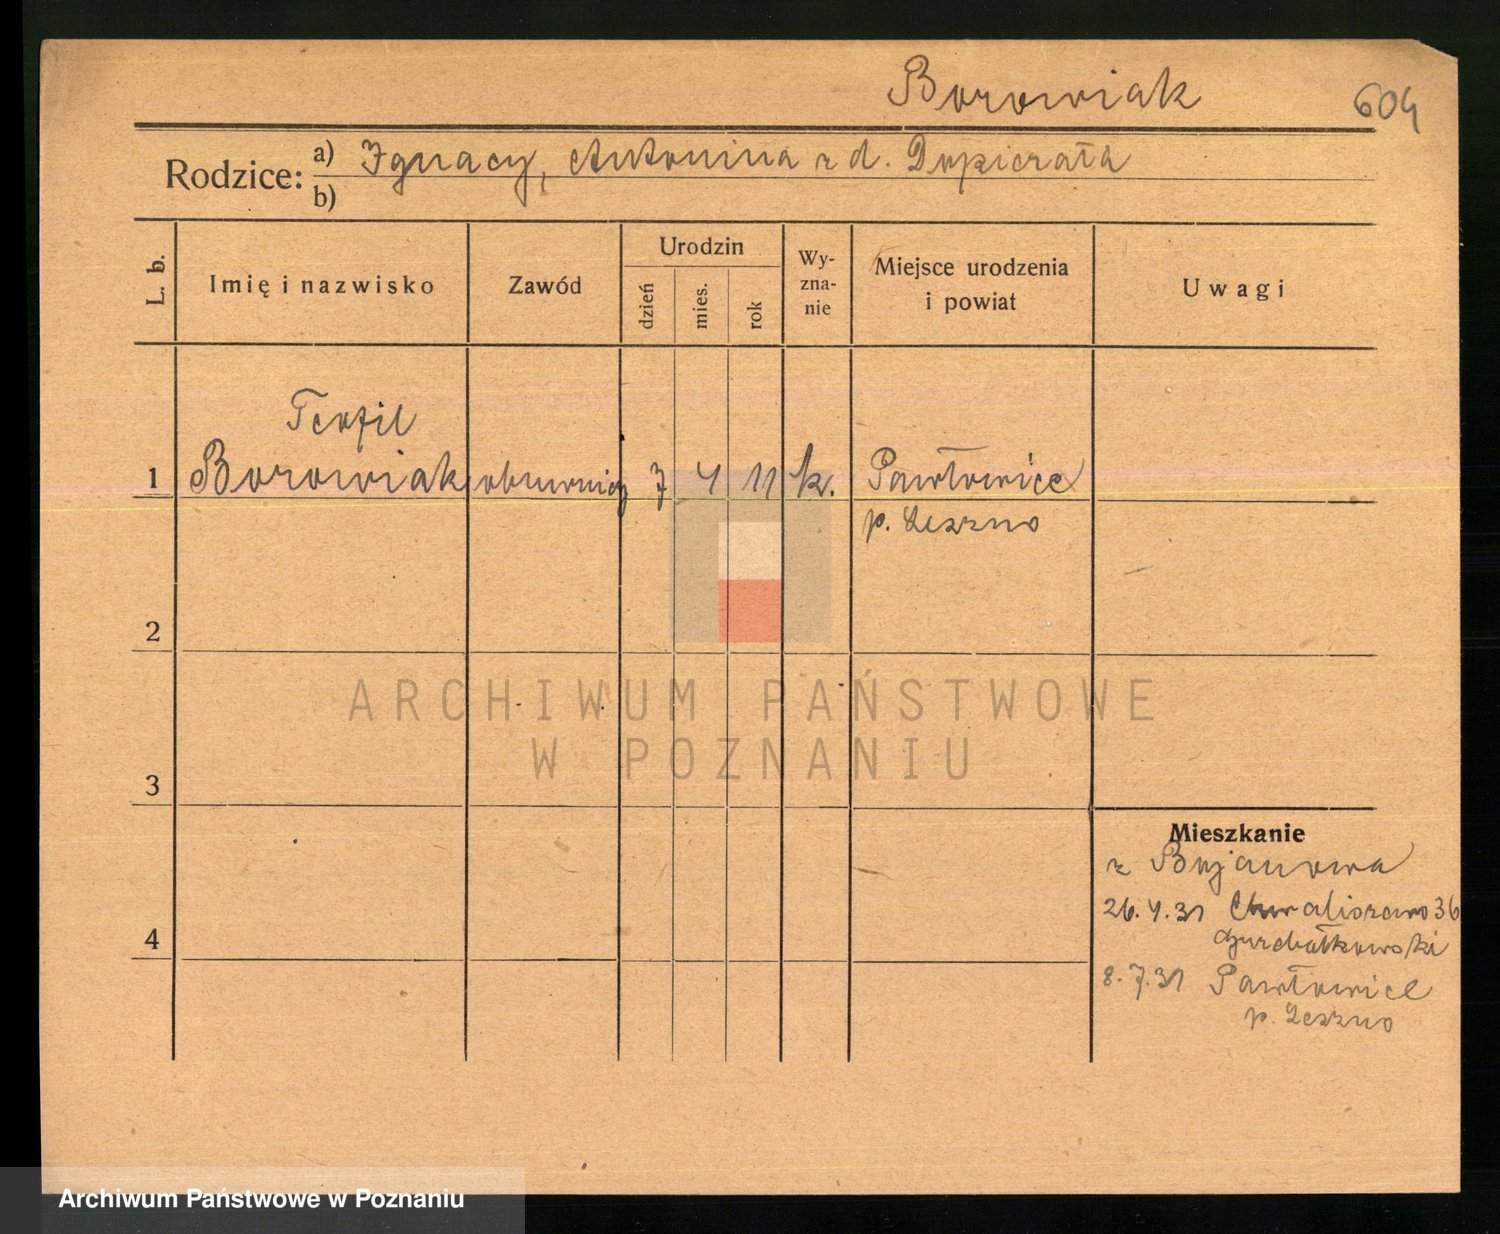 Borowiak
604
Rodzice:
a) Ignacy, Antonina z d. Dopierała
b)
L. b.
Imię i nazwisko
Zawód
Urodzin
dzień
mies.
rok
Wy-
zna-
nie
Miejsce urodzenia
i powiat
Uwagi
Teofil
1 Borowiak 7 4 11 k. Pawłowice
p. Leszno
2
3
4
Mieszkanie
z Bojanowa
26.4.31 36
8.7.31 Pawłowice
p. Leszno
ARCHIWUM PAŃSTWOWE
W POZNANIU
Archiwum Państwowe w Poznaniu